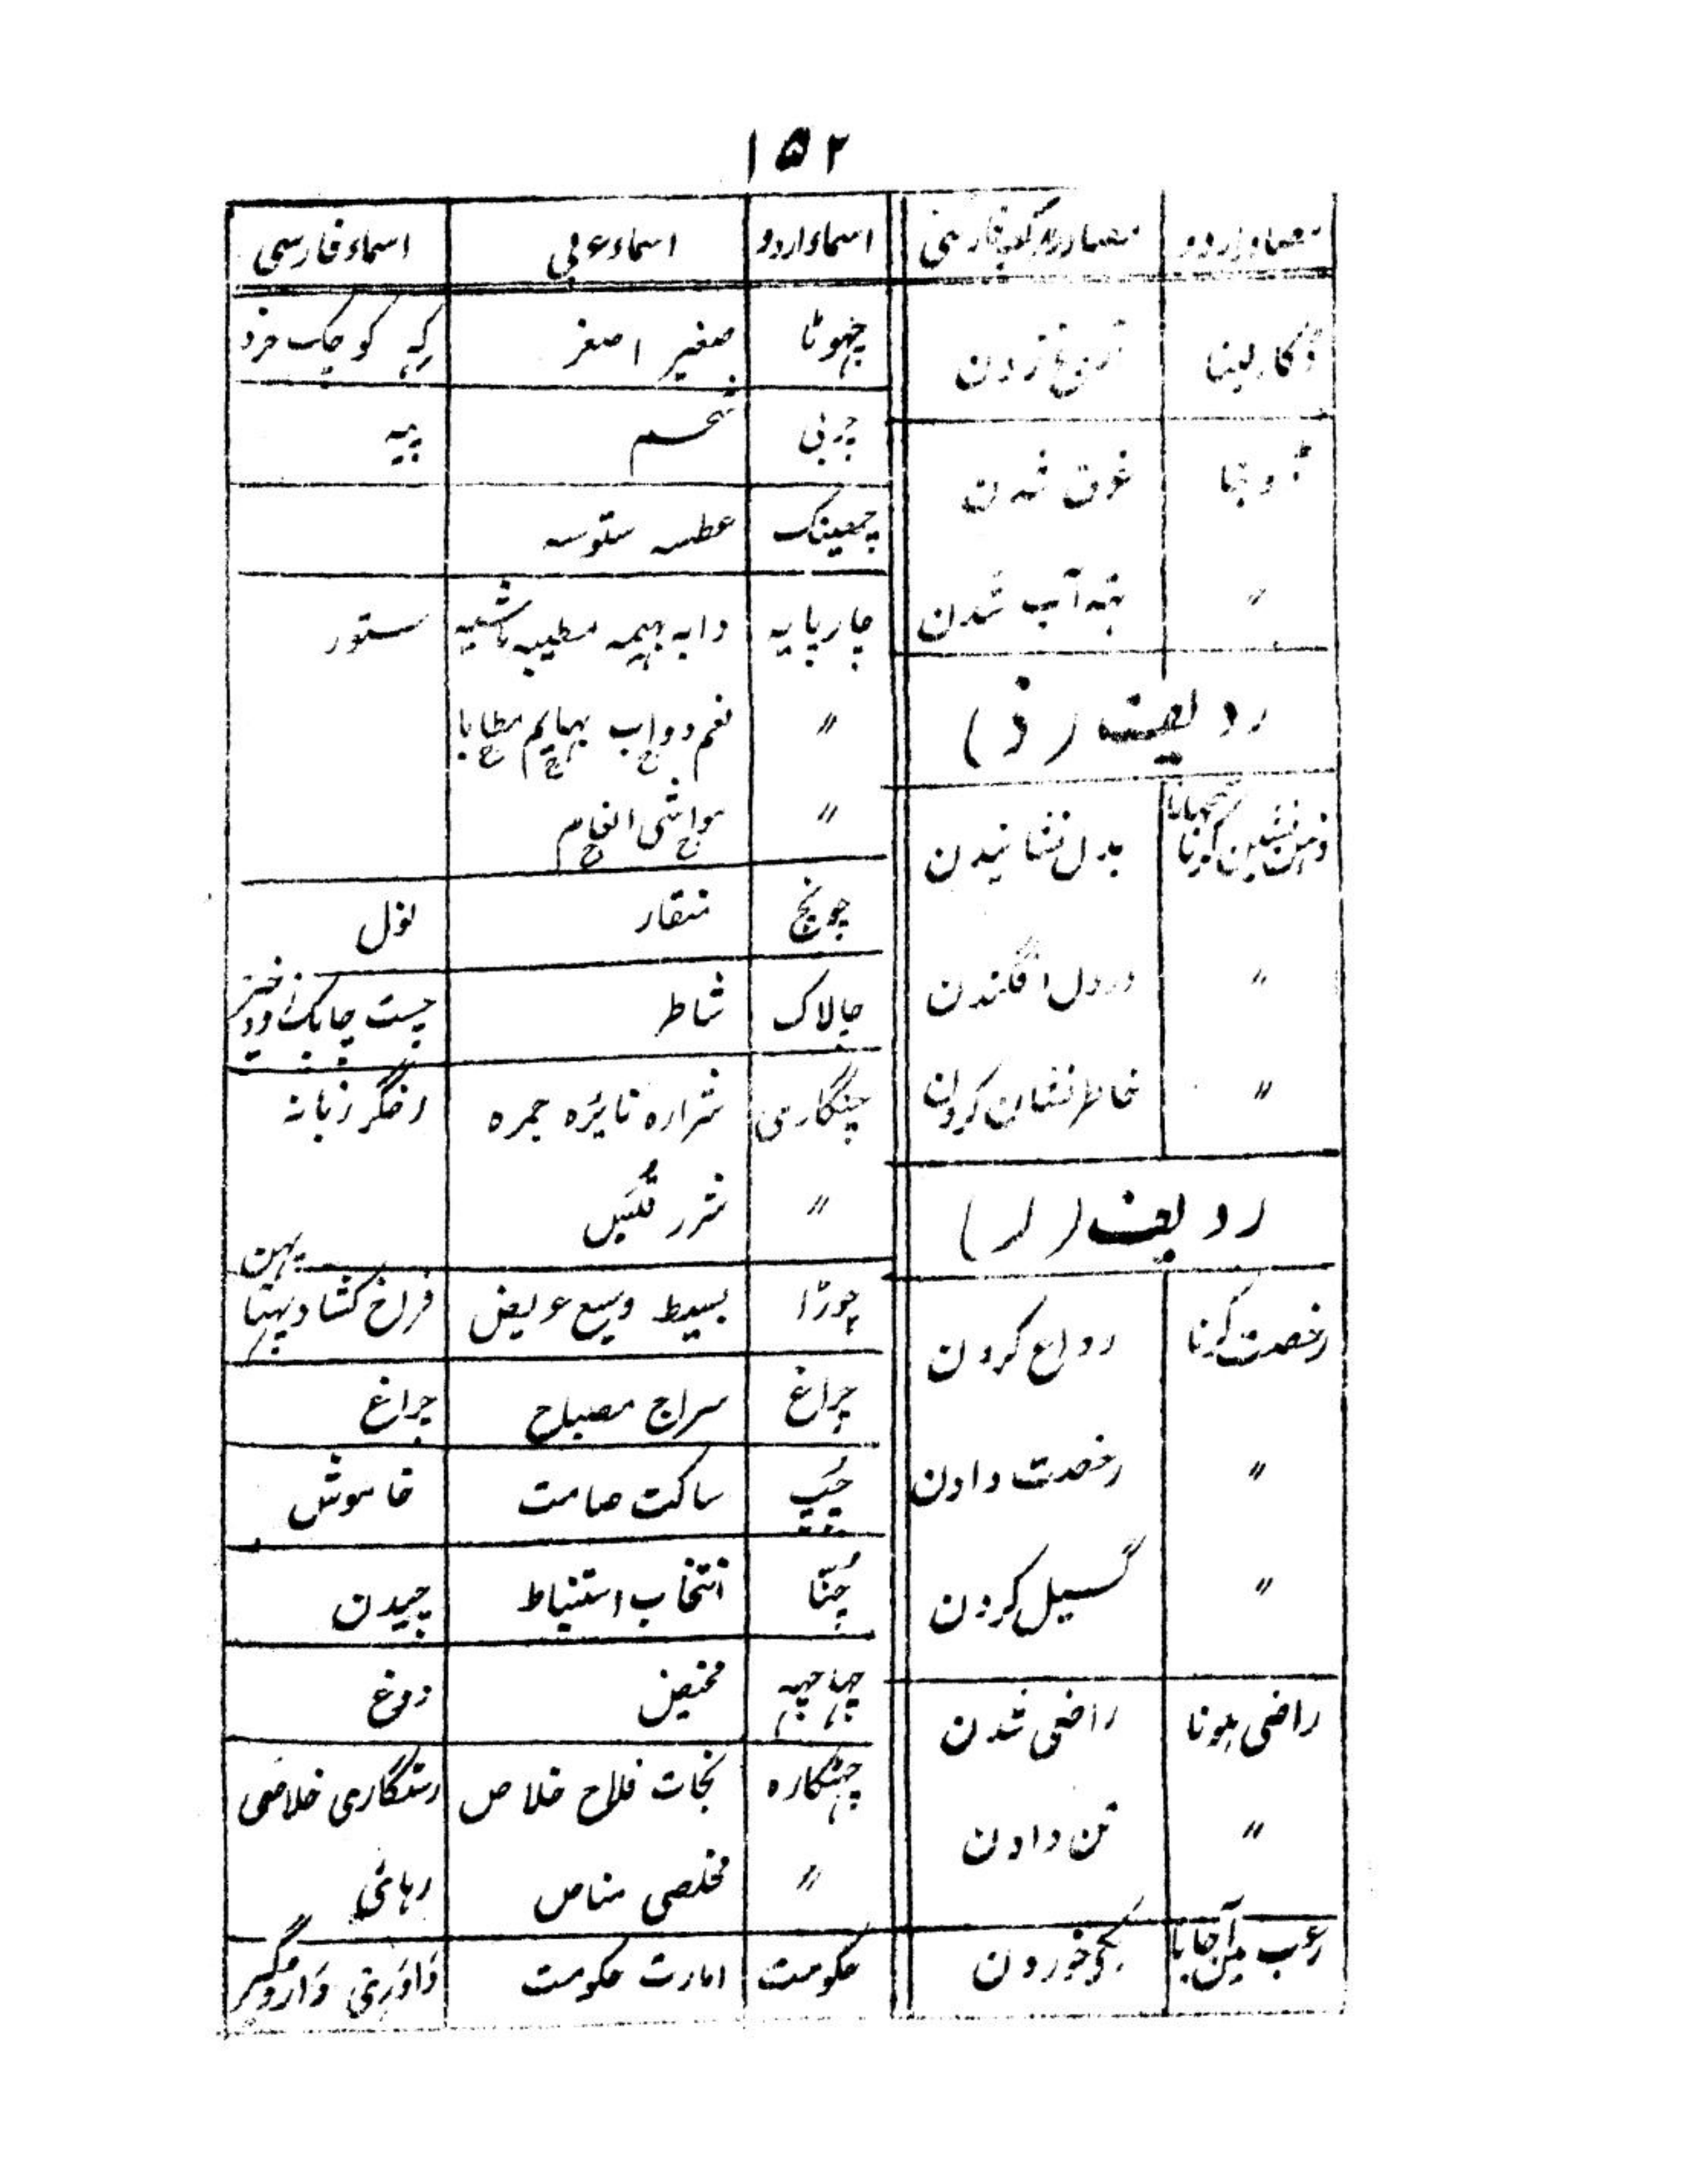 ۱۵۲
مصادر اردو | مصادر مرکب فارسی
ڈکار لینا | آروغ زدن
ڈوبنا | غرق شدن
〃 | بتہ آب شدن
ردیف (ذ)
ذہن نشین کرنا سمجھانا | بدل نشانیدن
〃 | در دل افگندن
〃 | خاطر نشان کردن
ردیف (ر)
رخصت کرنا | وداع کردن
〃 | رخصت دادن
〃 | گسیل کردن
راضی ہونا | راضی شدن
〃 | تن دادن
رعب میں آجانا | خوردن
اسماء اردو | اسماء عربی | اسماء فارسی
چھوٹا | صغیر اصغر | کہ کوچک خرد
چربی | شحم | پیہ
چھینک | عطسہ ستوسہ
چارپایہ | دابہ بہیمہ مطیہ ماشیہ | ستور
〃 | نعم دواب بہایم مطایا
〃 | مواشی انعام
چونچ | منقار | نول
چالاک | شاطر | چست چابک زود خیز
چنگاری | شرارہ نایرہ جمرہ | اخگر زبانہ
〃 | شرر
چوڑا | بسیط وسیع عریض | فراخ کشاد پہنا پہن
چراغ | سراج مصباح | چراغ
چپ | ساکت صامت | خاموش
چننا | انتخاب استنباط | چیدن
چھاچھہ | مخیض | دوغ
چھٹکارہ | نجات فلاح خلاص | رستگاری خلاصی
〃 | مخلصی مناص | رہائی
حکومت | امارت حکومت | داوری داروگیر